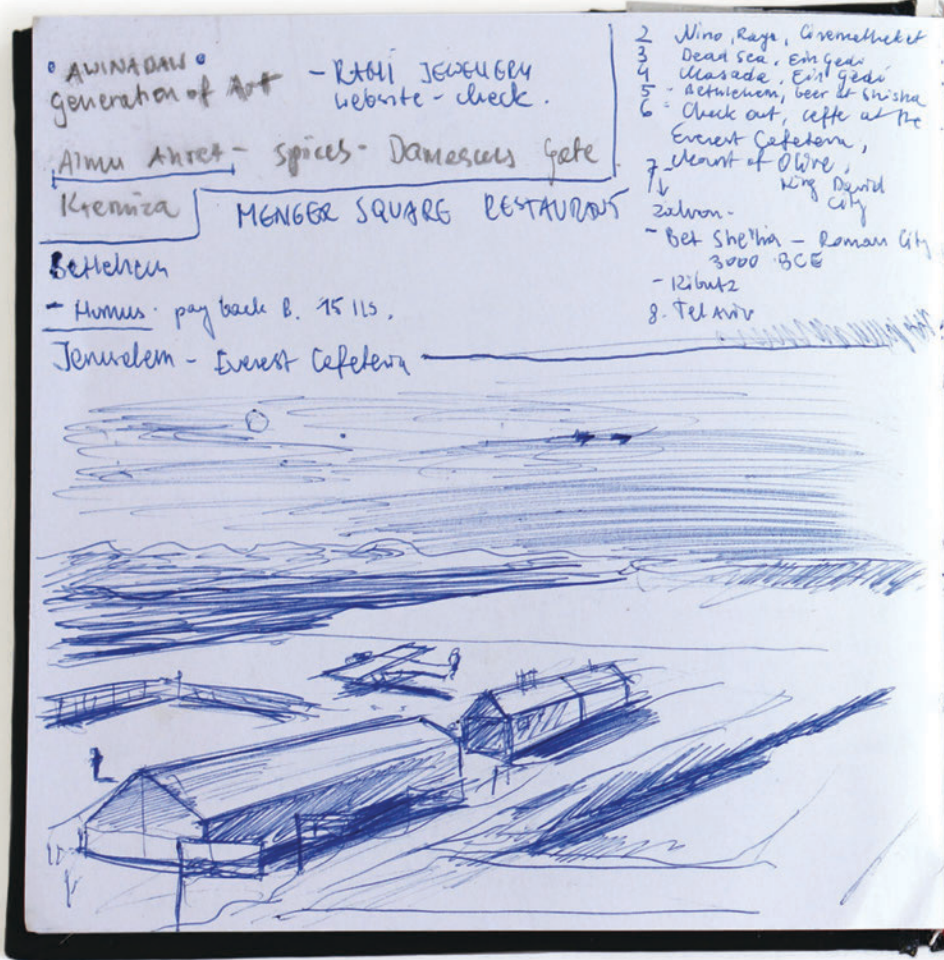 AWINADAW
generation of Art
- RAMI JEWELLERY
website - check.
Almu Ahret - Spices - Damascus Gate
Kremiza
MENGER SQUARE RESTAURANT
Betlehem
- Humus. pay back B. 15 ILS.
Jerusalem - Everest Cafeteria
2 Nino, Raya,
3 Dead Sea, Ein Gedi
4 Masada, Ein Gedi
5 - Bethlehem, beer at Shisha
6 - Check out, at the
Everest Cafeteria,
Mount of Olive,
King David
City
7
- Bet She'ha - Roman City
3000 BCE
- Kibutz
8. Tel Aviv